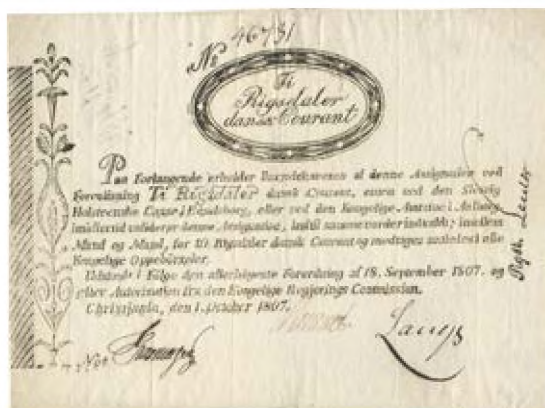 No 46731
Ti
Rigsdaler
dansk Courant
Paa Forlangende erholder Ihændehaveren af denne Assignation ved
Forevisning Ti Rigsdaler dansk Courant, enten ved den Slesvig
Holsteenske Casse i Rendsborg, eller ved den Kongelige i
imidlertid udstedes denne Assignation, indtil samme vorder indløst; imellem
Mand og Mand, for 10 Rigsdaler dansk Courant og modtages i alle
Kongelige Oppebørseler.
Udstædt i Følge den allerhøieste Forordning af 18. September 1807. og
efter Autorisation fra den Kongelige Regjerings Commission.
Christiania, den 1. October 1807.